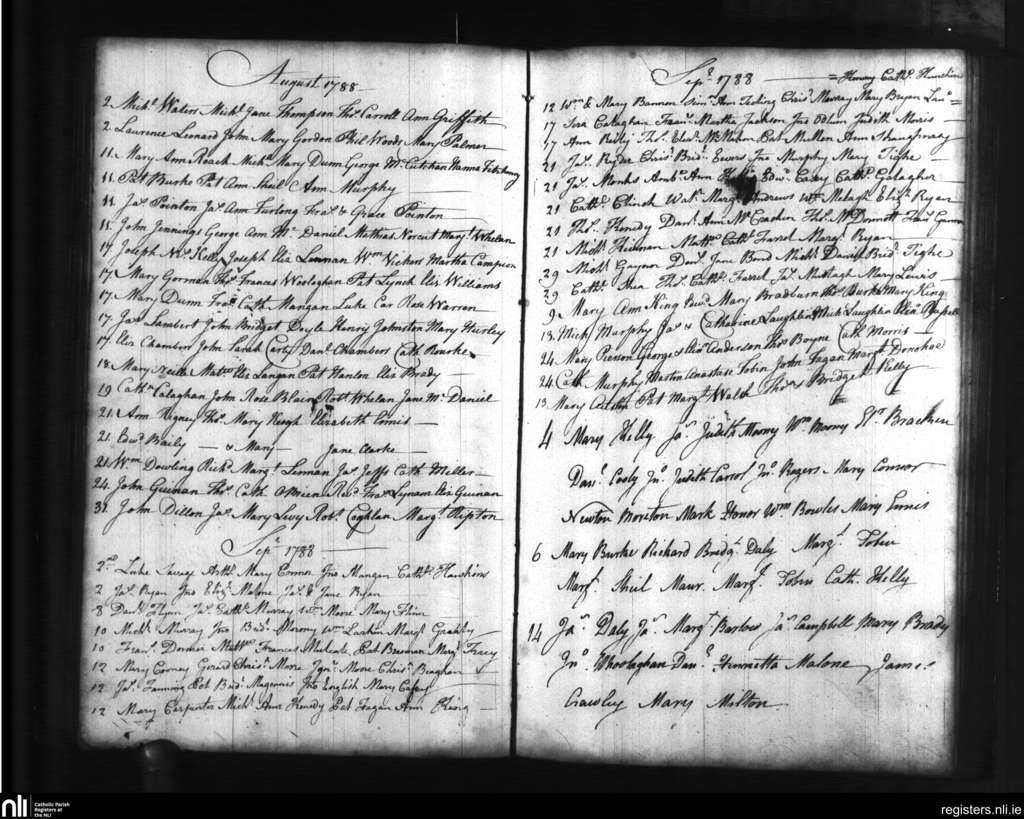 August 1788
2 Michl Waters Michl Jane Thompson Thos Carroll Ann Griffith
2 Laurence Lenard John Mary Gordon Phil Woods Mary Palmer
11 Mary Ann Roach Michl Mary Dunn George McCutchan Nanna
11 Pat Burke Pat Ann Sheil & Ann Murphy
11 Jas Pointon Jas Ann Furlong Fras & Grace Pointon
15 John Jennings George Ann McDaniel Mathias Margt Whelan
17 Joseph Kelly Joseph Eliz Lennan Wm Vickers Martha Campion
17 Mary Gorman Thos Frances Woolaghan Pat Lynch Eliz Williams
17 Mary Dunn Fras Cath Mangan Luke Car Rose Warren
17 Jas Lambert John Bridget Doyle Henry Johnston Mary Hurley
17 Eliz Chambers John Sarah Danl Chambers Cath Rourke
18 Mary Matw Eliz Langan Pat Hanlon Eliz Brady
19 Cathn Calaghan John Rose Robt Whelan Jane McDaniel
21 Ann Thos Mary Keogh Elizabeth Ennis
21 Edwd Baily — & Mary — Jane Clarke
21 Wm Dowling Richd Margt Lennan Jas Cath Miller
24 John Guinan Thos Cath OBrien Fras Lynam Eliz Guinan
31 John Dillon Jas Mary Levy Robt Coghlan Margt
Sepr 1788
2 Luke Mary Jno Mangan Cathe Hawkins
2 Jas Ryan Jno Elizh Malone Jas & Jane Ryan
8 Danl Flynn Jas Cathe Murray Moore Mary Flinn
10 Michl Murray Jno Bridt Wm Larkin Margt
10 Frans Dormer Mattw Frances Pat Brennan Margt Tracy
12 Mary Corney Gerard Christr More Ignts More Christr
12 Jas Fanning Pat Bridt Magennis Jno English Mary
12 Mary Carpenter Michl Ann Kenedy Pat Fagan Ann
Sepr 1788 — = Henry Cathe
12 Wm & Mary Bannon Ann Christ Murray Mary Bryan =
17 Calaghan Frans Martha Jackson Jno Judith
17 Ann Reilly Thos Eleanr McMahon Pat Mullen Ann Shaughnasy
21 Jas Ryder Christ Bridt Jno Murphy Mary Tighe
21 Jas Monks Ambe Ann Edwd Casey Cathe Galagher
21 Cathe Clinch Margt Andrews Wm Elizh Ryan
20 Thos Kenedy Danl Ann McCracken Thos McDermott
21 Michl Mattw Cathe Farrel Margt Ryan
29 Michl Gaynor Danl Jane Bond Michl Daniel Bridt Tighe
29 Cathe Shea Thos Cathe Farrel Jas Murtagh Mary Lewis
9 Mary Ann King Edwd Mary Bradburn Thos Burk Mary King
13 Mich Murphy Jas & Catharine Laughlin Mich Laughlin
24 Mary Pierson George & Eliza Anderson Thos Boyne Cath Morris
24 Cath Murphy Martin Anastass Tobin John Fagan Margt Donohoe
13 Mary Pat Margt Walsh Thos & Bridget Kelly
4 Mary Kelly Jas Judith Moony Wm Moony Bracken
Danl Jno Judith Carrol Jno Rogers Mary Connor
Newton Moreton Mark Honor Wm Bowles Mary Ennis
6 Mary Burke Richard Bridgt Daly Margt Tobin
Margt Sheil Maur. Margt Tobin Cath. Kelly
14 Jas Daly Jas Margt Barlow Jas Campbell Mary Brady
Jno Whoolaghan Danl Henrietta Malone James
Crawley Mary Melton
nli
Catholic Parish
Registers at
the NLI
registers.nli.ie